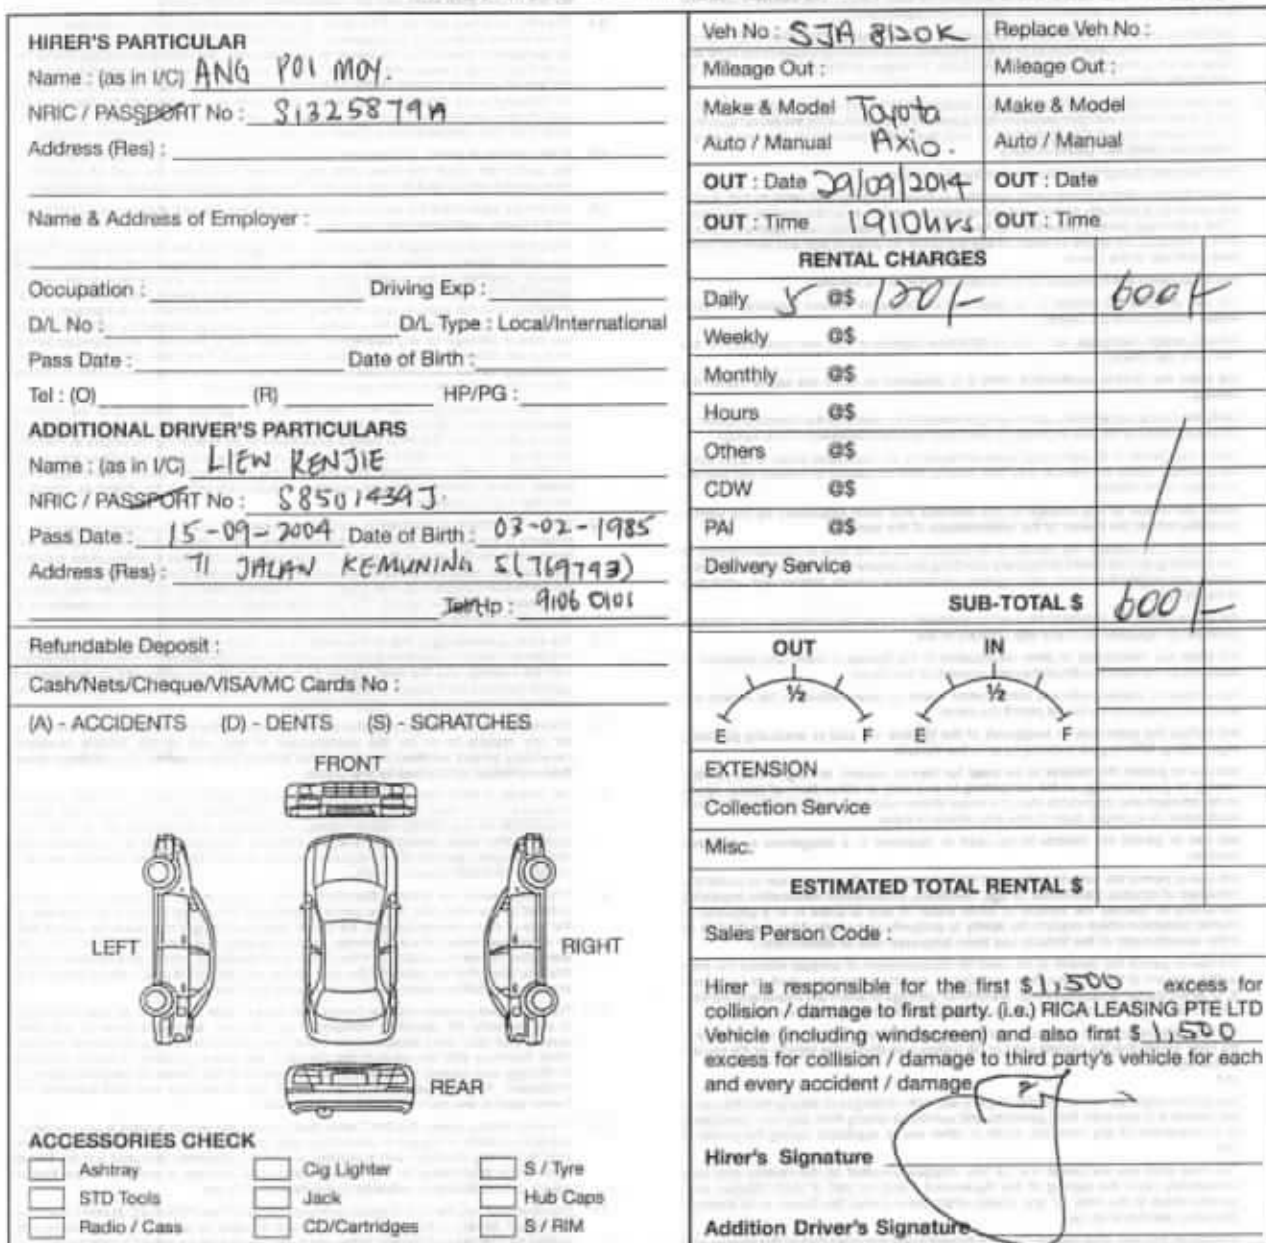 HIRER'S PARTICULAR
Name : (as in I/C) ANG POI MOY.
NRIC / PASSPORT No : S1325879A
Address (Res) :
Name & Address of Employer :
Occupation : Driving Exp :
D/L No : D/L Type : Local/International
Pass Date : Date of Birth :
Tel : (O) (R) HP/PG :
ADDITIONAL DRIVER'S PARTICULARS
Name : (as in I/C) LIEW RENJIE
NRIC / PASSPORT No : S8501439J
Pass Date : 15-09-2004 Date of Birth : 03-02-1985
Address (Res) : 71 JALAN KEMUNING S(769793)
Tel/Hp : 9106 0101
Refundable Deposit :
Cash/Nets/Cheque/VISA/MC Cards No :
(A) - ACCIDENTS (D) - DENTS (S) - SCRATCHES
FRONT
LEFT
RIGHT
REAR
ACCESSORIES CHECK
Ashtray Cig Lighter S / Tyre
STD Tools Jack Hub Caps
Radio / Cass CD/Cartridges S / RIM
Veh No : SJA 8120K Replace Veh No :
Mileage Out : Mileage Out :
Make & Model Toyota Make & Model
Auto / Manual Axio. Auto / Manual
OUT : Date 29/09/2014 OUT : Date
OUT : Time 1910hrs OUT : Time
RENTAL CHARGES
Daily 5 @$ 120/- 600/-
Weekly @$
Monthly @$
Hours @$
Others @$
CDW @$
PAI @$
Delivery Service
SUB-TOTAL $ 600/-
OUT IN
½ ½
E F E F
EXTENSION
Collection Service
Misc.
ESTIMATED TOTAL RENTAL $
Sales Person Code :
Hirer is responsible for the first $1,500 excess for
collision / damage to first party. (i.e.) RICA LEASING PTE LTD
Vehicle (including windscreen) and also first $1,500
excess for collision / damage to third party's vehicle for each
and every accident / damage
Hirer's Signature
Addition Driver's Signature